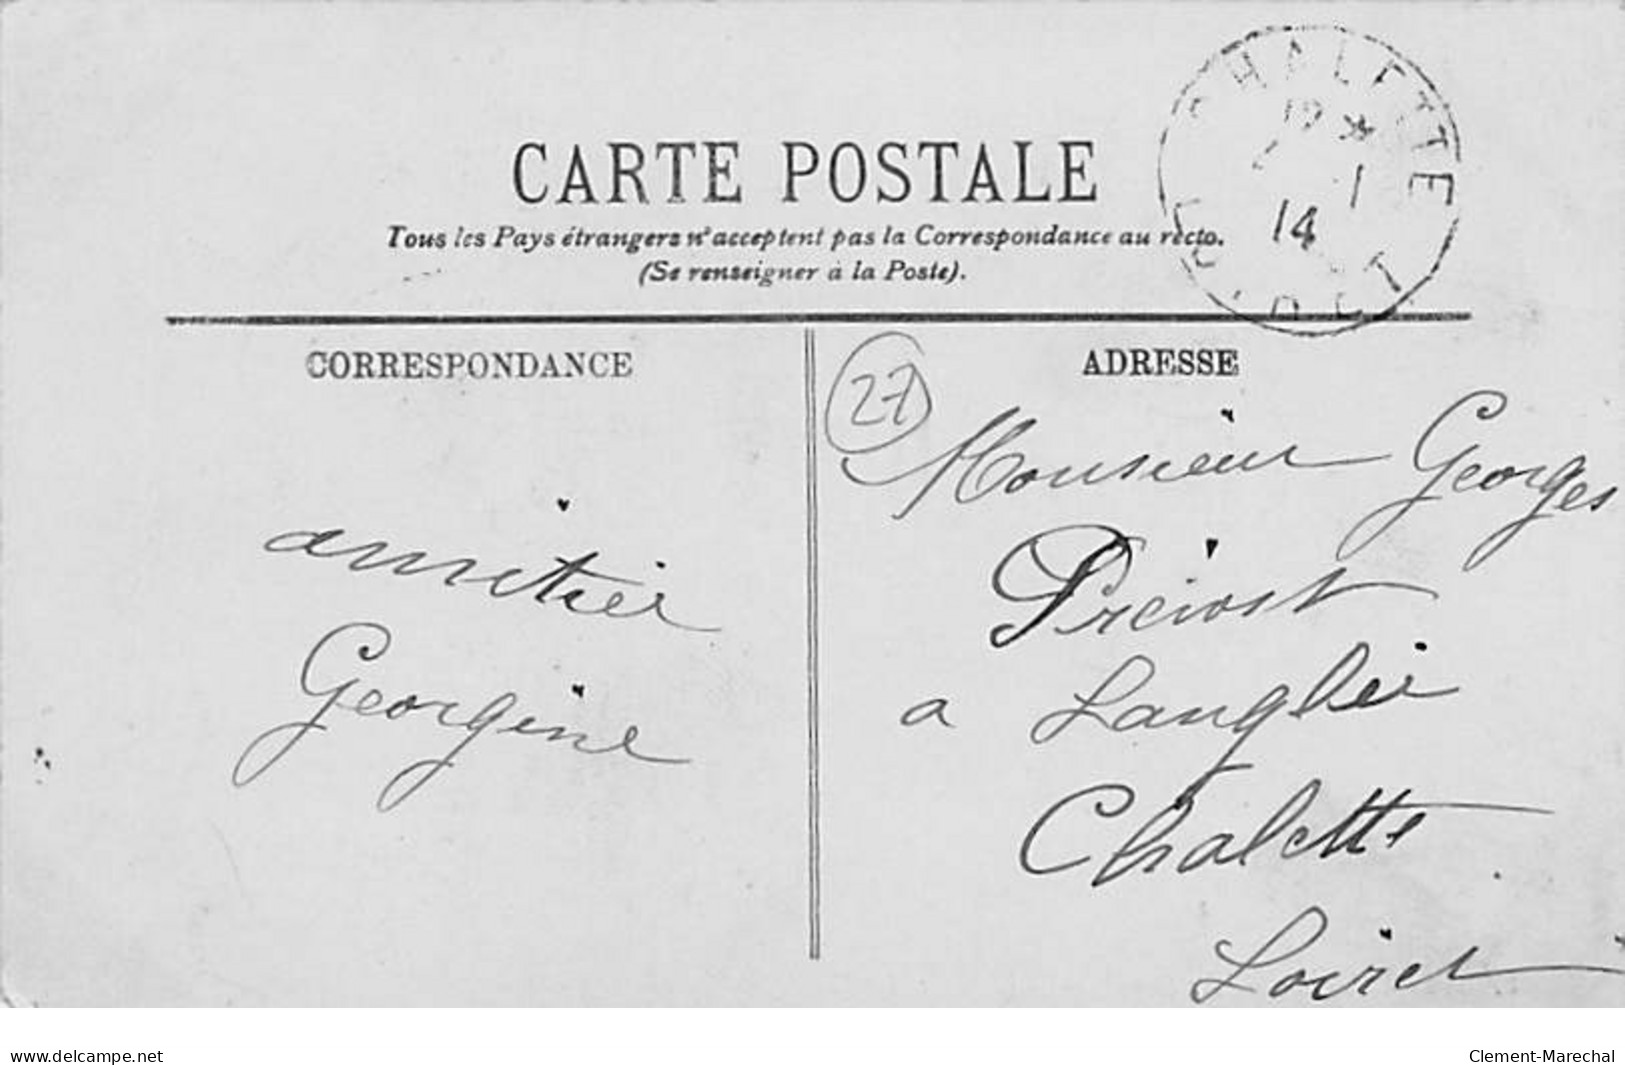 CHALETTE
12 *
1
14
LOIRET
CARTE POSTALE
Tous les Pays étrangers n'acceptent pas la Correspondance au recto.
(Se renseigner à la Poste).
CORRESPONDANCE
ADRESSE
27
Monsieur Georges
Prévost
a Langlée
Chalette
Loiret
amitiés
Georgine
delcampe.net
Clement-Marechal